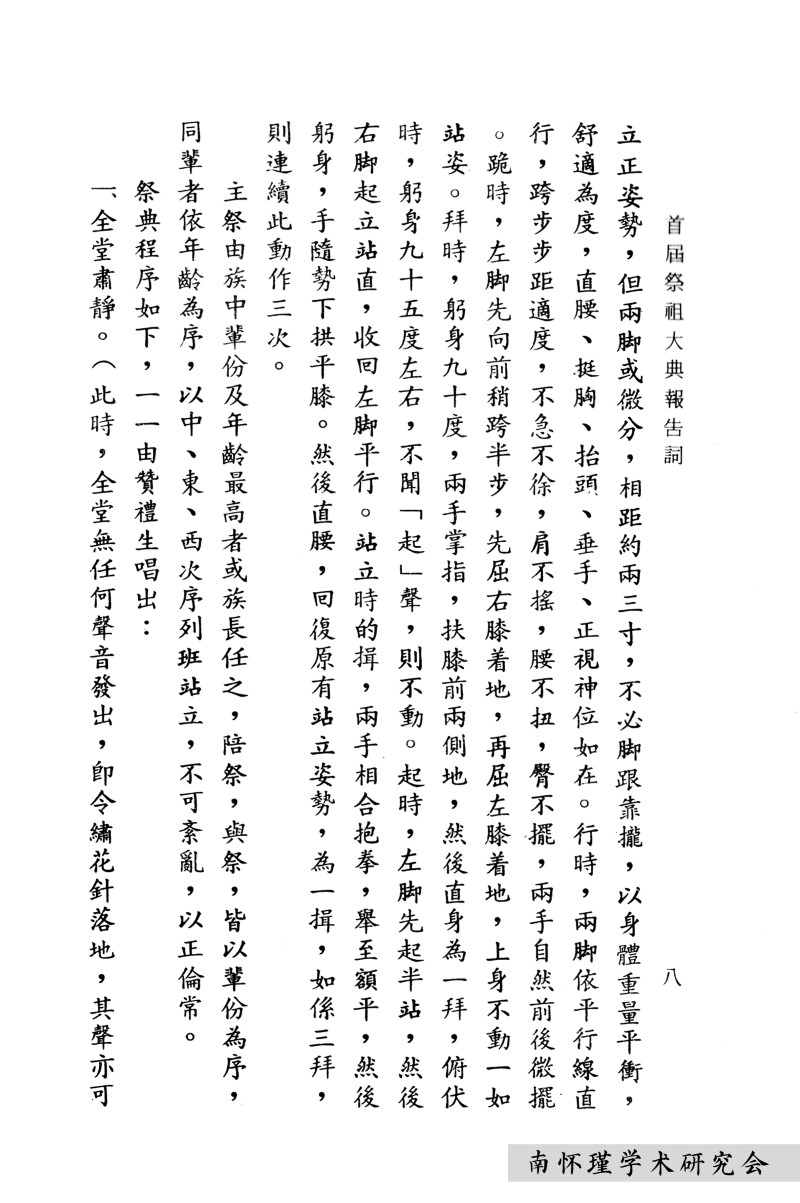 首屆祭祖大典報告詞
八
立正姿勢，但兩脚或微分，相距約兩三寸，不必脚跟靠攏，以身體重量平衡，
舒適為度，直腰、挺胸、抬頭、垂手、正視神位如在。行時，兩脚依平行線直
行，跨步步距適度，不急不徐，肩不搖，腰不扭，臀不擺，兩手自然前後微擺
。跪時，左脚先向前稍跨半步，先屈右膝着地，再屈左膝着地，上身不動一如
站姿。拜時，躬身九十度，兩手掌指，扶膝前兩側地，然後直身為一拜，俯伏
時，躬身九十五度左右，不聞「起」聲，則不動。起時，左脚先起半站，然後
右脚起立站直，收回左脚平行。站立時的揖，兩手相合抱拳，舉至額平，然後
躬身，手隨勢下拱平膝。然後直腰，回復原有站立姿勢，為一揖，如係三拜，
則連續此動作三次。
主祭由族中輩份及年齡最高者或族長任之，陪祭，與祭，皆以輩份為序，
同輩者依年齡為序，以中、東、西次序列班站立，不可紊亂，以正倫常。
祭典程序如下，一一由贊禮生唱出：
一、全堂肅靜。（此時，全堂無任何聲音發出，即令繡花針落地，其聲亦可
南怀瑾学术研究会